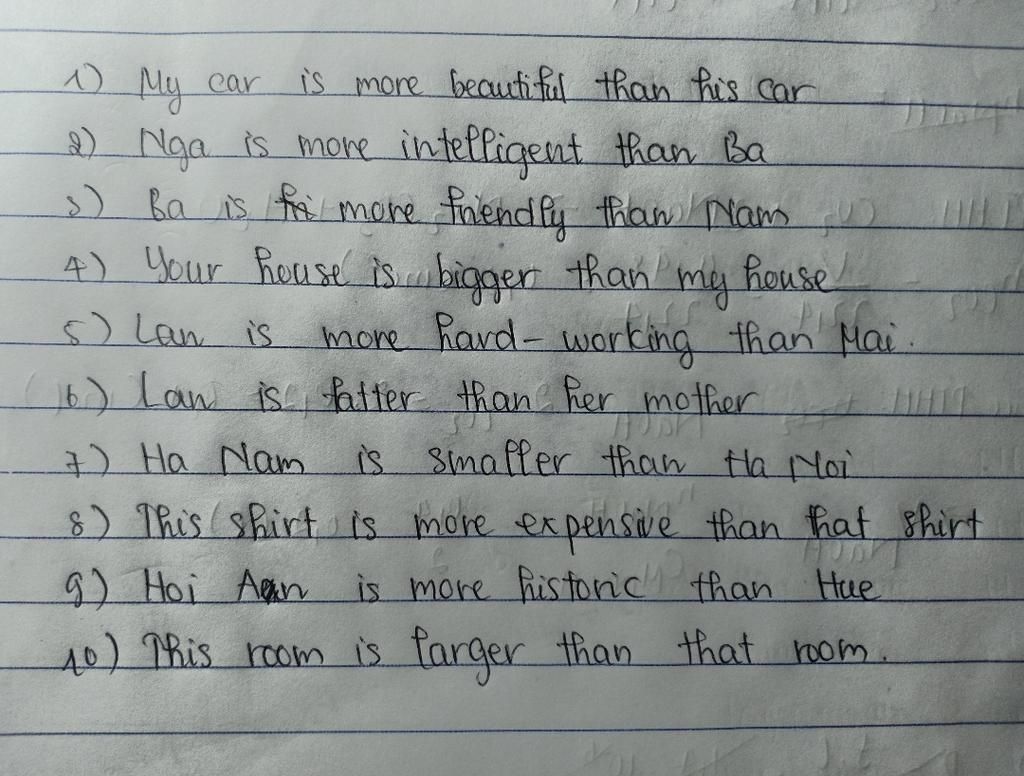 1) My car is more beautiful than his car
2) Nga is more intelligent than Ba
3) Ba is more friendly than Nam
4) Your house is bigger than my house
5) Lan is more hard-working than Mai.
6) Lan is fatter than her mother
7) Ha Nam is smaller than Ha Noi
8) This shirt is more expensive than that shirt
9) Hoi An is more historic than Hue
10) This room is larger than that room.